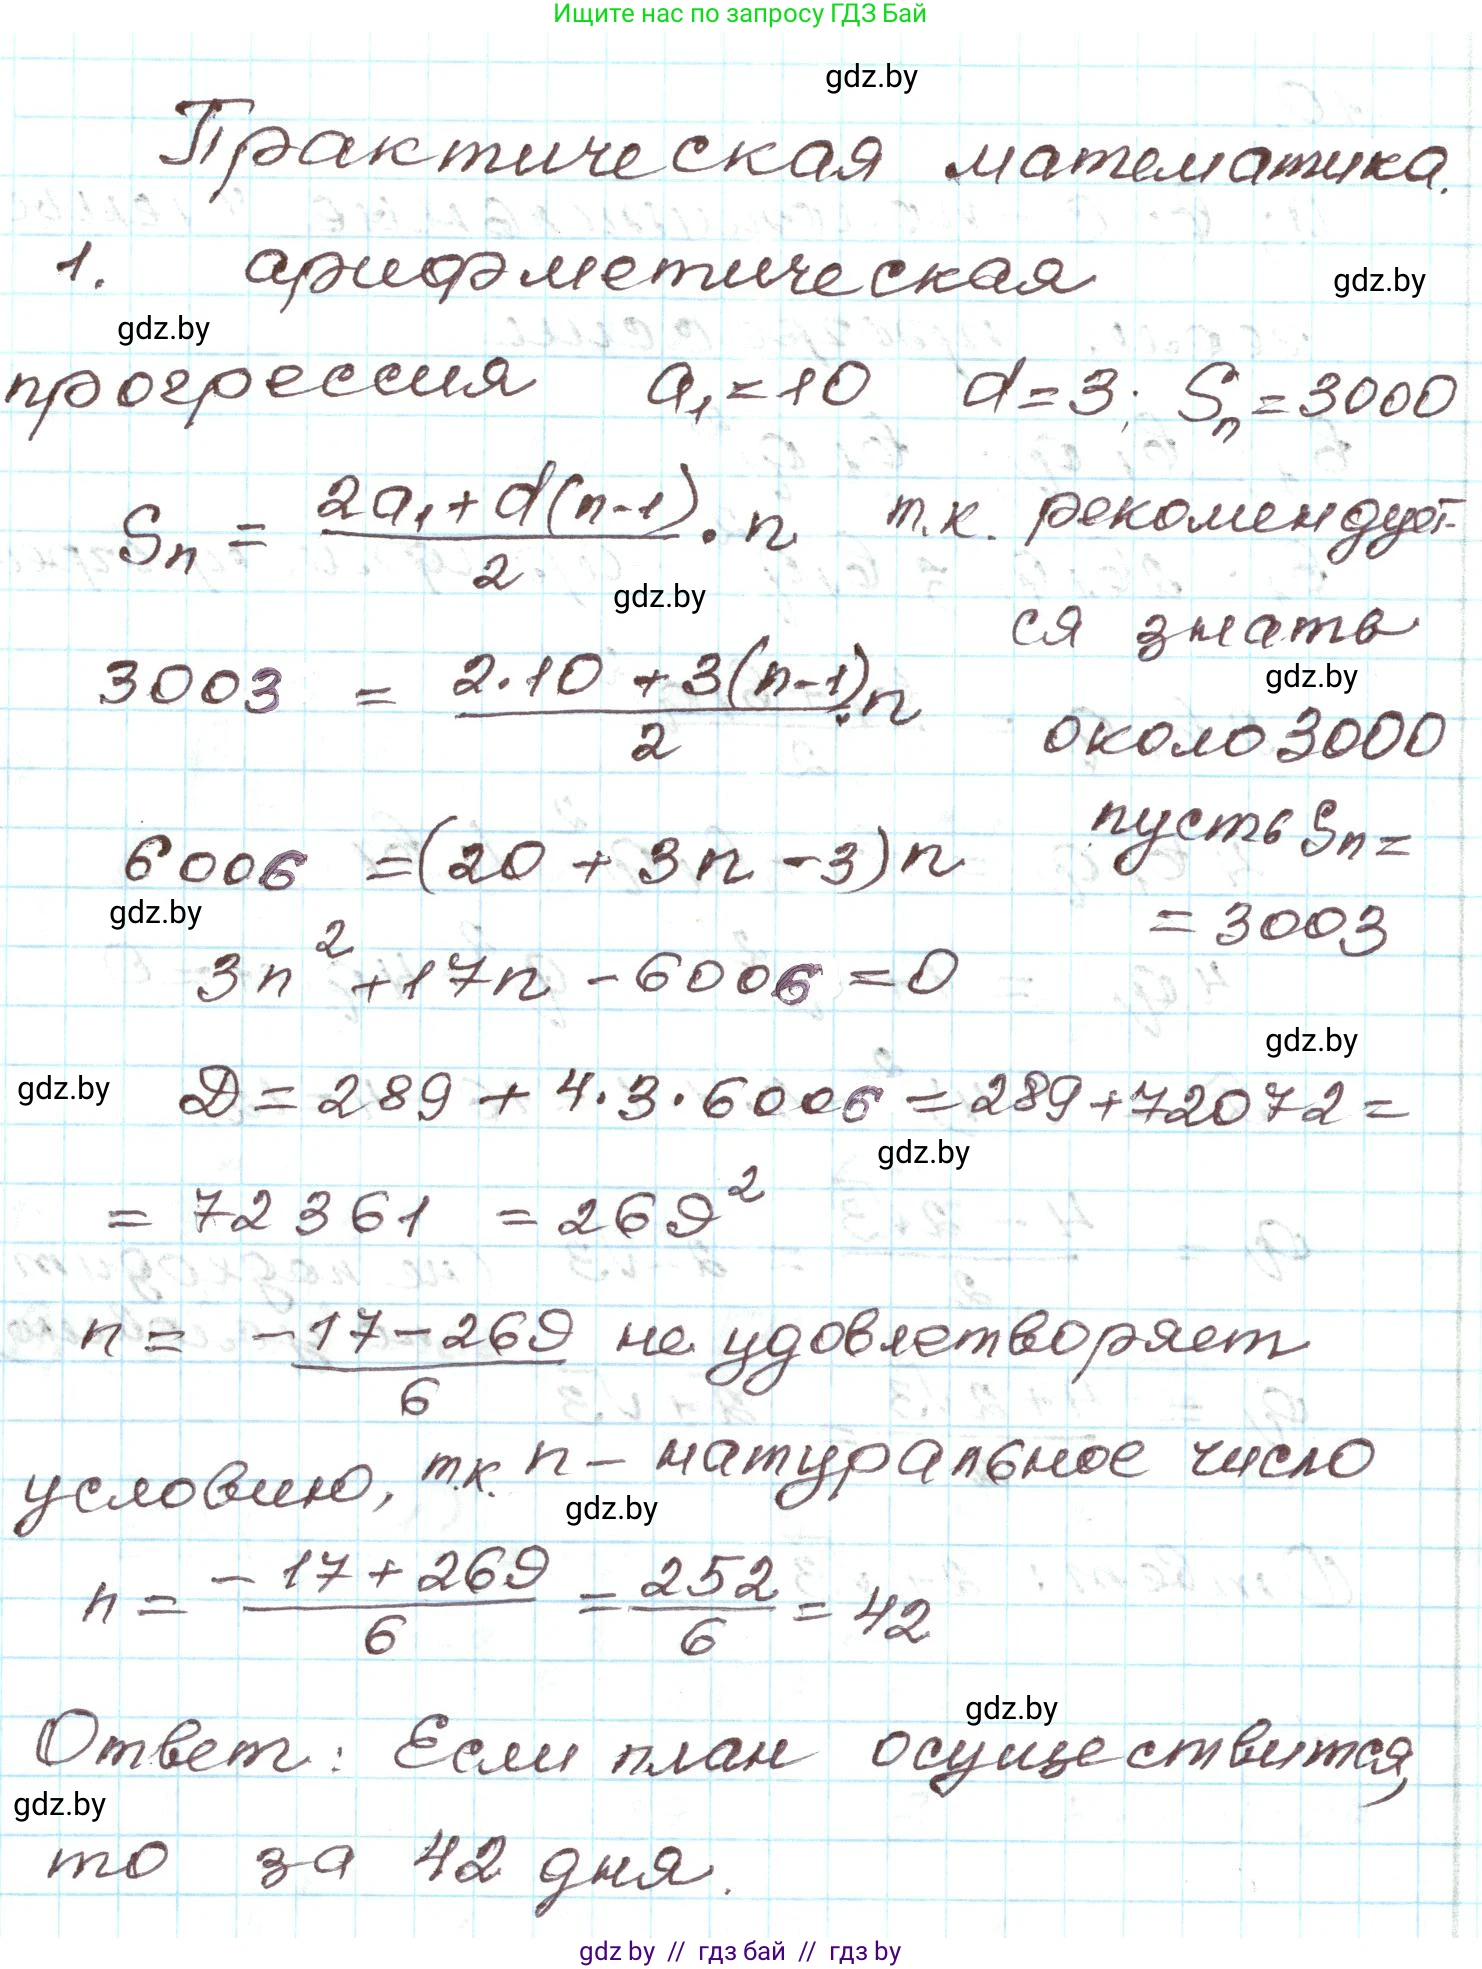 Ищите нас по запросу ГДЗ Бай
gdz.by
Практическая математика.
1. арифметическая
gdz.by
gdz.by
прогрессия a₁=10 d=3; Sₙ=3000
Sₙ = (2a₁+d(n-1))/2 · n т.к. рекомендует-
gdz.by
ся знать
gdz.by
3003 = (2·10+3(n-1))/2 · n
около 3000
пусть Sₙ=
6006 =(20+3n-3)n
gdz.by
= 3003
3n²+17n-6006=0
gdz.by
gdz.by
D=289+4·3·6006=289+72072=
gdz.by
= 72361 = 269²
n= (-17-269)/6 не удовлетворяет
условию, т.к. n - натуральное число
gdz.by
n= (-17+269)/6 = 252/6 = 42
gdz.by
Ответ: Если план осуществится,
gdz.by
то за 42 дня.
gdz by // гдз бай // гдз by